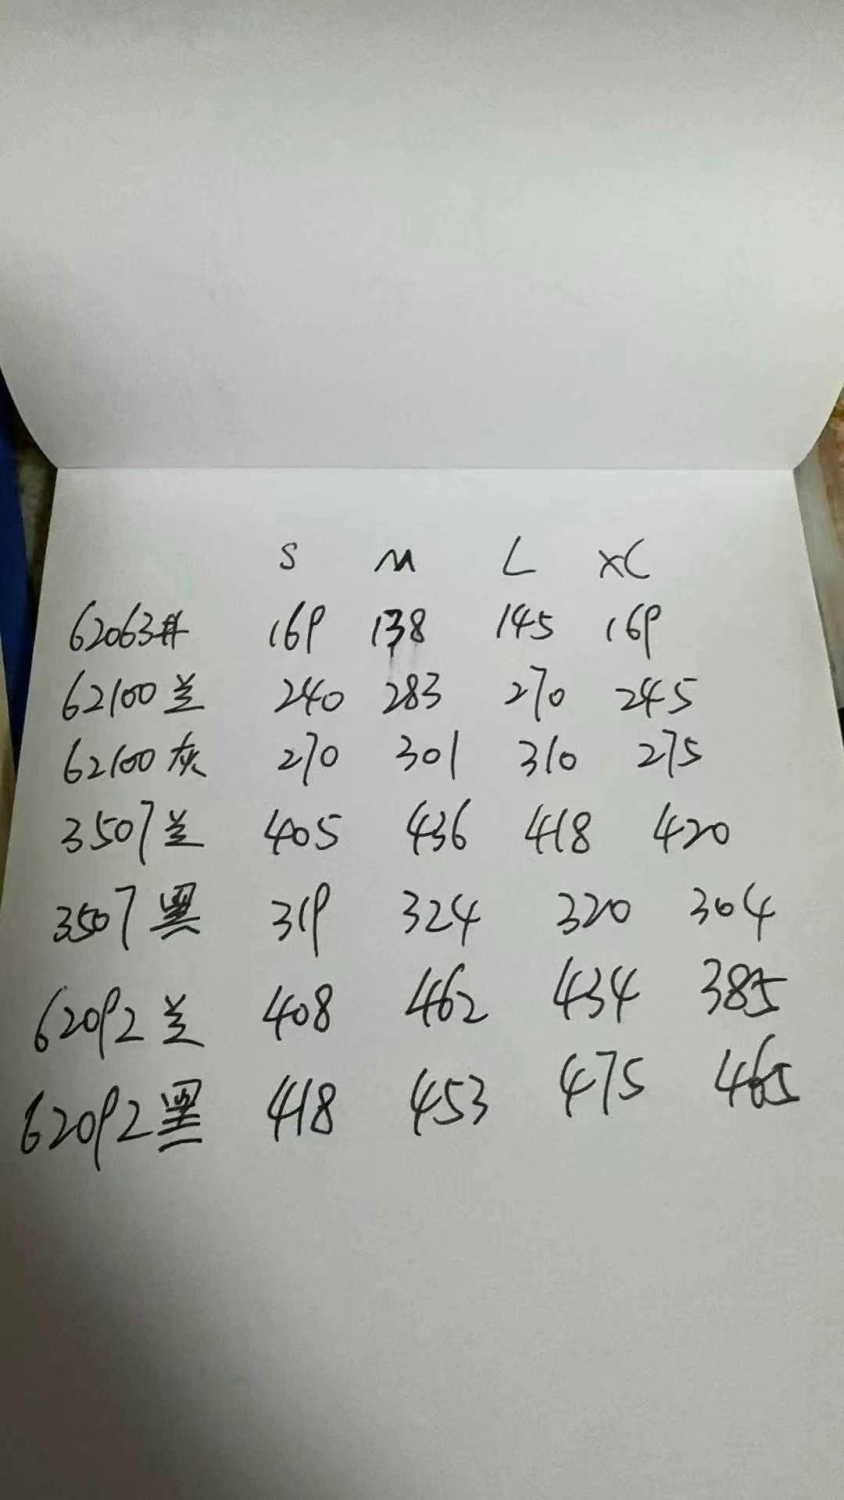 S M L XL
62063# 169 138 145 169
62100兰 240 283 270 245
62100灰 270 301 310 275
3507兰 405 436 418 420
3507黑 319 324 320 304
62092兰 408 462 434 385
62092黑 418 453 475 465